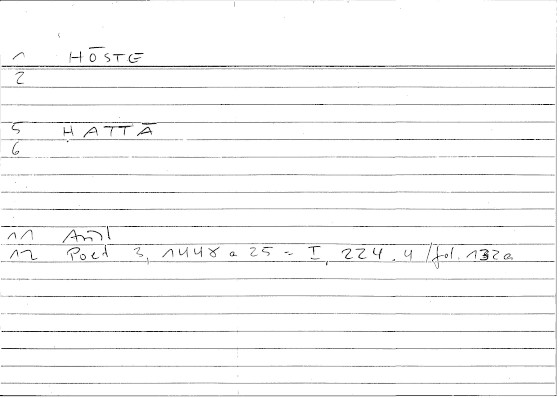 1 HŌSTE
2
5 HATTĀ
6
11 Arist
12 Poet 3, 1448 a 25 = I, 224.4 / fol. 132a